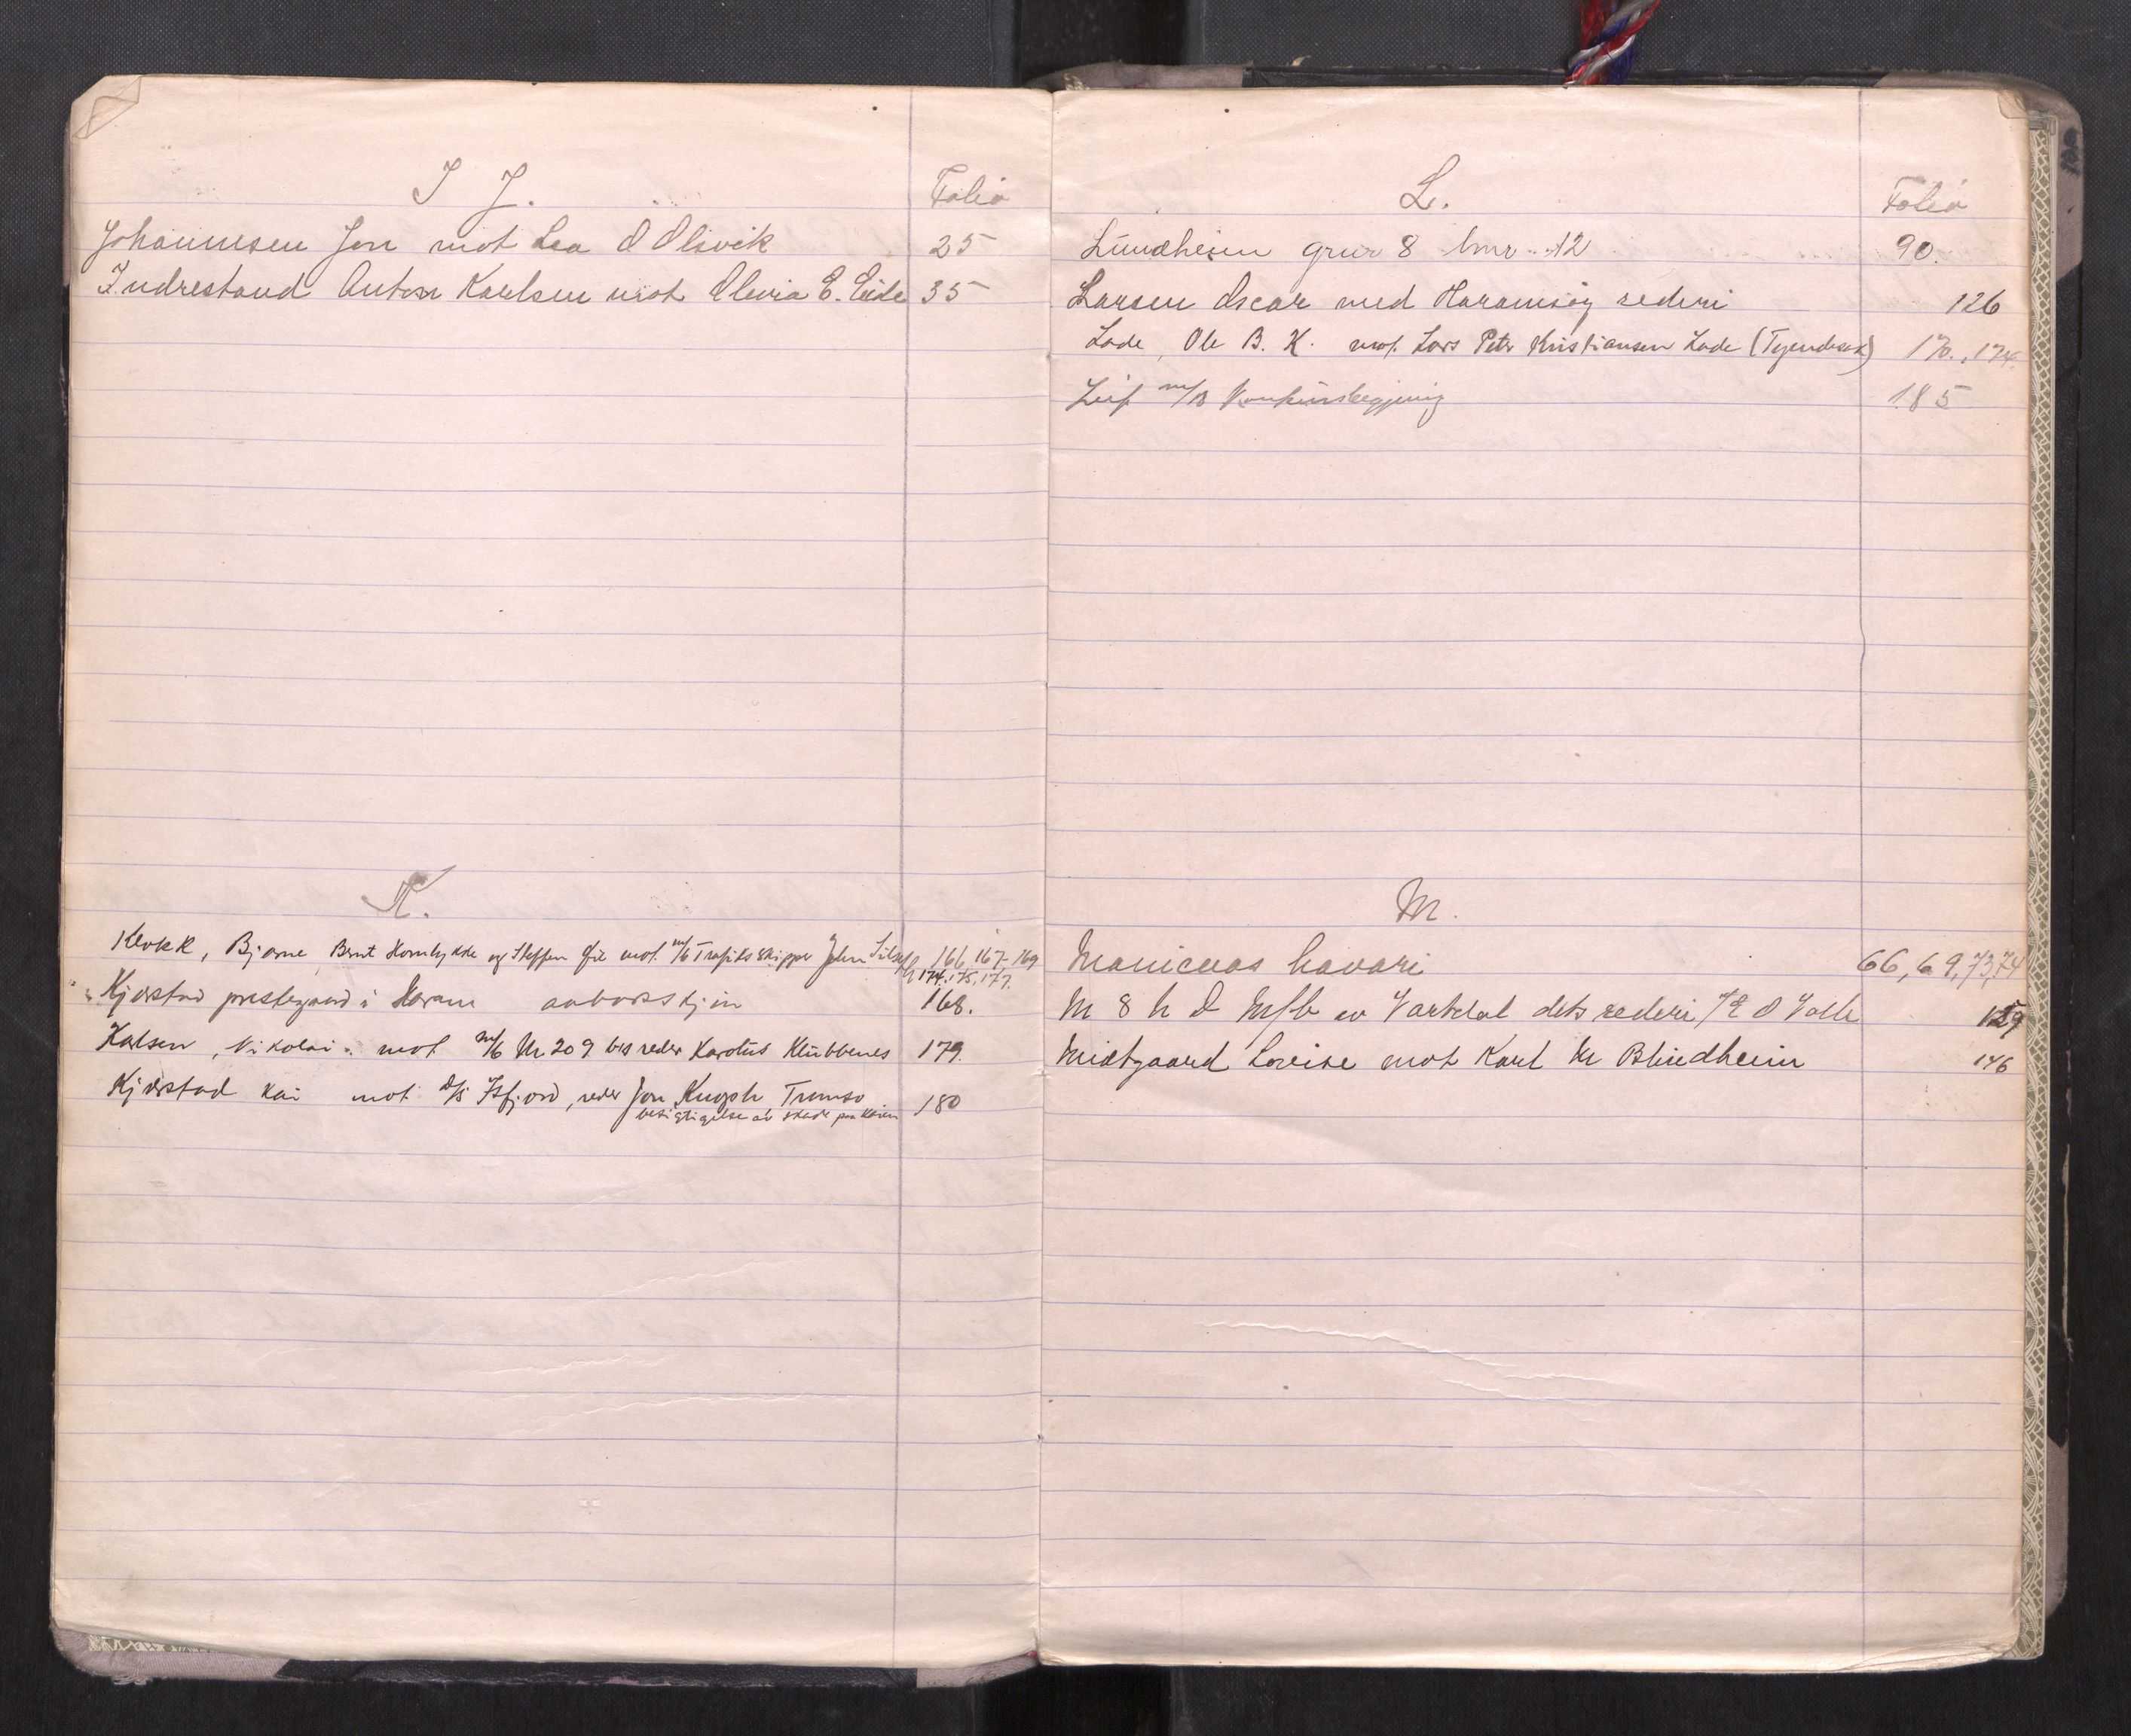 I J.
Folio
Johannesen Jon mot Lea O Olsvik 25
Indrestand Anton Karlsen mot Elvria E. Eide 35
K.
Klokk, Bjarne, Bernt Hornlykke og Steffen mot m/b Trafik skipper John 166, 167-169
174, 175, 177.
Kjerstad prestegaard i Haram aabodsskjøn 168.
Kalsen, Nikolai mot m/b M 20 9 reder Karolus Klubbenes 179.
Kjerstad kai mot D/s Isfjord, reder Jon Tromsø 180
besigtigelse av skade paa kaien
L.
Folio
Lundheim gnur 8 bnr 12 90.
Larsen Oscar med Haramsøy rederi 126
Lade, Ole B. K. mot Lars Peter Kristiansen Lade 170, 174.
Leif m/b Konkursbegjæring 185
M.
havari 66, 69, 73, 74
M 8 h D M/b av Vartdal dets rederi
Midtgaard Lovise mot Karl M Blindheim 146